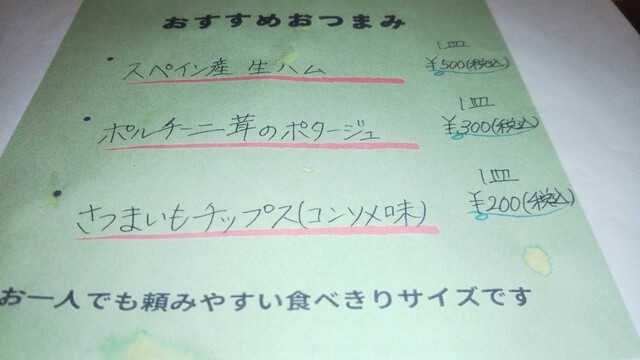 おすすめおつまみ
・スペイン産 生ハム 1皿 ¥500(税込)
・ポルチーニ茸のポタージュ 1皿 ¥300(税込)
・さつまいもチップス(コンソメ味) 1皿 ¥200(税込)
お一人でも頼みやすい食べきりサイズです